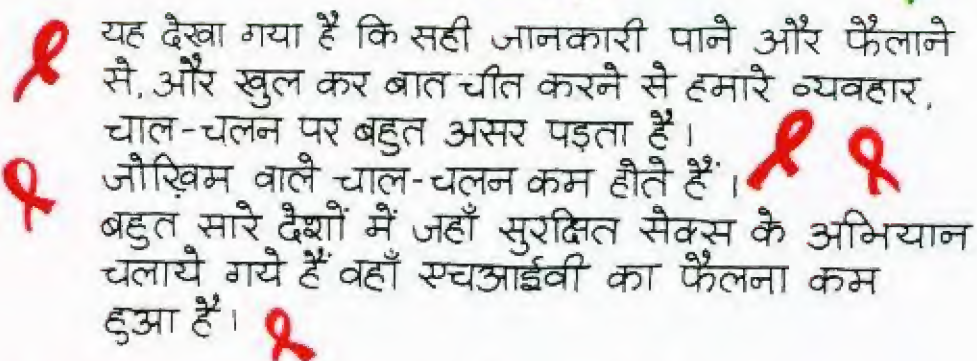 यह देखा गया है कि सही जानकारी पाने और फैलाने
से, और खुल कर बात चीत करने से हमारे व्यवहार,
चाल-चलन पर बहुत असर पड़ता है।
जोख़िम वाले चाल-चलन कम होते हैं।
बहुत सारे देशों में जहाँ सुरक्षित सेक्स के अभियान
चलाये गये हैं वहाँ एचआईवी का फैलना कम
हुआ है।